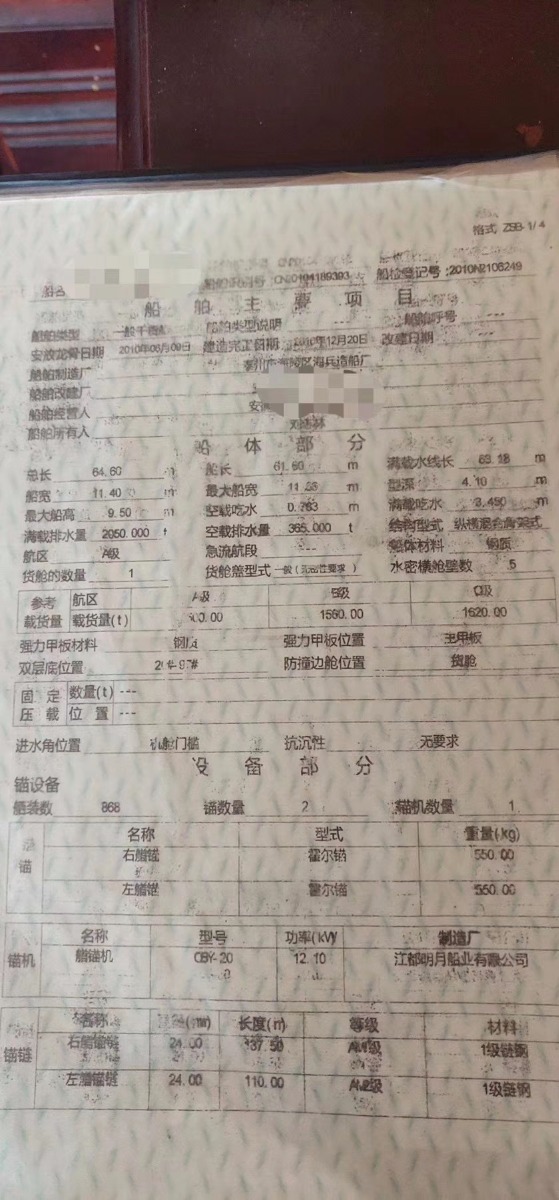 格式 ZSB-1/4
船名 船舶识别号:CN20104189393 船检登记号:2010N2106249
船舶主要项目
船舶类型 一般干货船 船舶类型说明 --- 船舶呼号 ---
安放龙骨日期 2010年06月09日 建造完工日期 2010年12月20日 改建日期 ---
船舶制造厂 海陵区海兵造船厂
船舶改建厂
船舶经营人 安
船舶所有人
船体部分
总长 64.60 m 船长 61.60 m 满载水线长 63.18 m
船宽 11.40 m 最大船宽 m 型深 4.10 m
最大船高 9.50 m 空载吃水 0.763 m 满载吃水 3.450 m
满载排水量 2050.000 t 空载排水量 365.000 t 结构型式 纵横混合骨架式
航区 A级 急流航段 --- 船体材料 钢质
货舱的数量 1 货舱盖型式 一般(风雨密性要求) 水密横舱壁数 5
参考 航区 A级 B级 C级
载货量 载货量(t) 00.00 1560.00 1620.00
强力甲板材料 钢质 强力甲板位置 主甲板
双层底位置 防撞边舱位置 货舱
固定 数量(t) ---
压载 位置 ---
进水角位置 机舱门槛 抗沉性 无要求
设备部分
锚设备
舾装数 868 锚数量 2 锚机数量 1
锚 名称 型式 重量(kg)
右艏锚 霍尔锚 550.00
左艏锚 霍尔锚 550.00
锚机 名称 型号 功率(kW) 制造厂
艏锚机 CBY-20 12.10 江都明月船业有限公司
0
锚链 名称 (mm) 长度(m) 等级 材料
右艏锚链 24.00 137.50 AM1级 1级链钢
左艏锚链 24.00 110.00 级 1级链钢